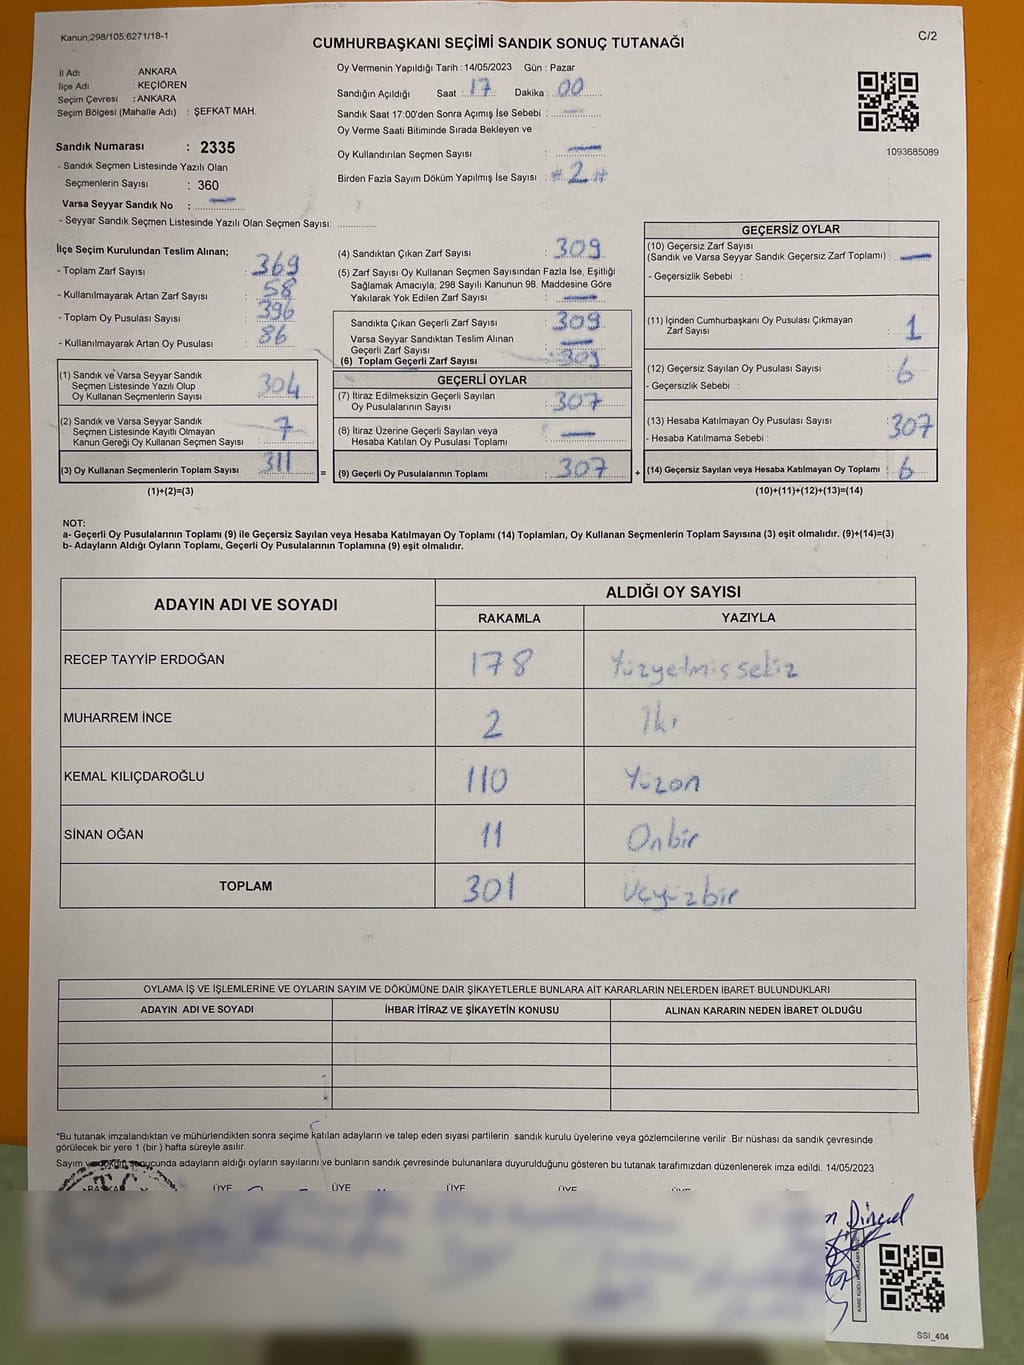 Kanun;298/105,6271/18-1
CUMHURBAŞKANI SEÇİMİ SANDIK SONUÇ TUTANAĞI
C/2
İl Adı : ANKARA
İlçe Adı : KEÇİÖREN
Seçim Çevresi : ANKARA
Seçim Bölgesi (Mahalle Adı) : ŞEFKAT MAH.
Oy Vermenin Yapıldığı Tarih :14/05/2023 Gün : Pazar
Sandığın Açıldığı Saat : 17 Dakika : 00
Sandık Saat 17:00'den Sonra Açımış İse Sebebi : —
Oy Verme Saati Bitiminde Sırada Bekleyen ve
Oy Kullandırılan Seçmen Sayısı : —
Birden Fazla Sayım Döküm Yapılmış İse Sayısı : # 2 #
1093685089
Sandık Numarası : 2335
- Sandık Seçmen Listesinde Yazılı Olan
Seçmenlerin Sayısı : 360
Varsa Seyyar Sandık No : —
- Seyyar Sandık Seçmen Listesinde Yazılı Olan Seçmen Sayısı: ..............
İlçe Seçim Kurulundan Teslim Alınan;
- Toplam Zarf Sayısı : 369
- Kullanılmayarak Artan Zarf Sayısı : 58
- Toplam Oy Pusulası Sayısı : 396
- Kullanılmayarak Artan Oy Pusulası : 86
(1) Sandık ve Varsa Seyyar Sandık
Seçmen Listesinde Yazılı Olup
Oy Kullanan Seçmenlerin Sayısı : 304
(2) Sandık ve Varsa Seyyar Sandık
Seçmen Listesinde Kayıtlı Olmayan
Kanun Gereği Oy Kullanan Seçmen Sayısı : 7
(3) Oy Kullanan Seçmenlerin Toplam Sayısı : 311
(1)+(2)=(3)
(4) Sandıktan Çıkan Zarf Sayısı : 309
(5) Zarf Sayısı Oy Kullanan Seçmen Sayısından Fazla İse, Eşitliği
Sağlamak Amacıyla, 298 Sayılı Kanunun 98. Maddesine Göre
Yakılarak Yok Edilen Zarf Sayısı : —
Sandıkta Çıkan Geçerli Zarf Sayısı : 309
Varsa Seyyar Sandıktan Teslim Alınan
Geçerli Zarf Sayısı : —
(6) Toplam Geçerli Zarf Sayısı : 309
=
GEÇERLİ OYLAR
(7) İtiraz Edilmeksizin Geçerli Sayılan
Oy Pusulalarının Sayısı : 307
(8) İtiraz Üzerine Geçerli Sayılan veya
Hesaba Katılan Oy Pusulası Toplamı : —
(9) Geçerli Oy Pusulalarının Toplamı : 307
+
GEÇERSİZ OYLAR
(10) Geçersiz Zarf Sayısı
(Sandık ve Varsa Seyyar Sandık Geçersiz Zarf Toplamı) : —
- Geçersizlik Sebebi :
(11) İçinden Cumhurbaşkanı Oy Pusulası Çıkmayan
Zarf Sayısı : 1
(12) Geçersiz Sayılan Oy Pusulası Sayısı : 6
- Geçersizlik Sebebi :
(13) Hesaba Katılmayan Oy Pusulası Sayısı : 307
- Hesaba Katılmama Sebebi :
(14) Geçersiz Sayılan veya Hesaba Katılmayan Oy Toplamı : 6
(10)+(11)+(12)+(13)=(14)
NOT:
a- Geçerli Oy Pusulalarının Toplamı (9) ile Geçersiz Sayılan veya Hesaba Katılmayan Oy Toplamı (14) Toplamları, Oy Kullanan Seçmenlerin Toplam Sayısına (3) eşit olmalıdır. (9)+(14)=(3)
b- Adayların Aldığı Oyların Toplamı, Geçerli Oy Pusulalarının Toplamına (9) eşit olmalıdır.
ADAYIN ADI VE SOYADI
ALDIĞI OY SAYISI
RAKAMLA YAZIYLA
RECEP TAYYİP ERDOĞAN 178 Yüzyetmişsekiz
MUHARREM İNCE 2 İki
KEMAL KILIÇDAROĞLU 110 Yüzon
SİNAN OĞAN 11 Onbir
TOPLAM 301 Üçyüzbir
OYLAMA İŞ VE İŞLEMLERİNE VE OYLARIN SAYIM VE DÖKÜMÜNE DAİR ŞİKAYETLERLE BUNLARA AİT KARARLARIN NELERDEN İBARET BULUNDUKLARI
ADAYIN ADI VE SOYADI İHBAR İTİRAZ VE ŞİKAYETİN KONUSU ALINAN KARARIN NEDEN İBARET OLDUĞU
*Bu tutanak imzalandıktan ve mühürlendikten sonra seçime katılan adayların ve talep eden siyasi partilerin sandık kurulu üyelerine veya gözlemcilerine verilir .Bir nüshası da sandık çevresinde
görülecek bir yere 1 (bir ) hafta süreyle asılır.
Sayım ve döküm sonucunda adayların aldığı oyların sayılarını ve bunların sandık çevresinde bulunanlara duyurulduğunu gösteren bu tutanak tarafımızdan düzenlenerek imza edildi. 14/05/2023
BAŞKAN ÜYE ÜYE ÜYE ÜYE ÜYE
SSİ_404